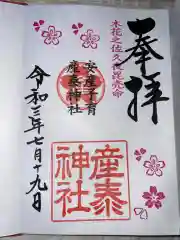 奉拝
木花之佐久夜毘売命
安産子育
産泰神社
産泰神社
令和三年七月十九日